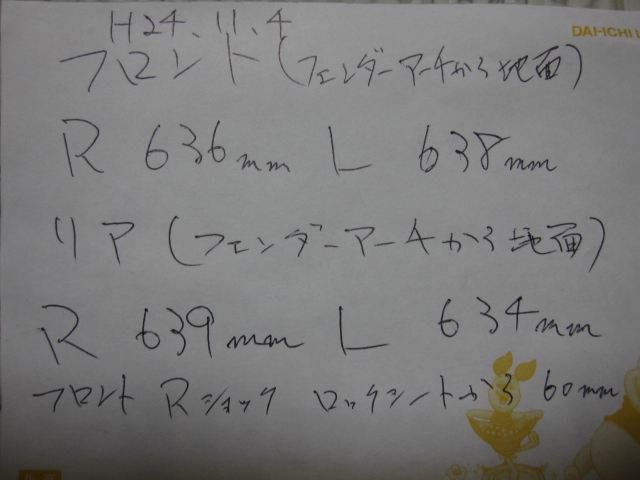 DAI-ICHI
H24.11.4
フロント(フェンダーアーチから地面)
R 636mm L 638mm
リア(フェンダーアーチから地面)
R 639mm L 634mm
フロント Rショック ロックシートから 60mm